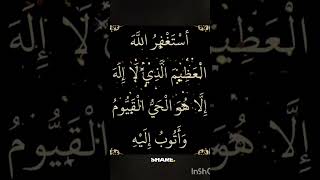 أَسْتَغْفِرُ اللَّهَ
الْعَظِيمَ الَّذِي لَا إِلَهَ
إِلَّا هُوَ الْحَيُّ الْقَيُّومُ
وَأَتُوبُ إِلَيْهِ
SHAME.
InSh